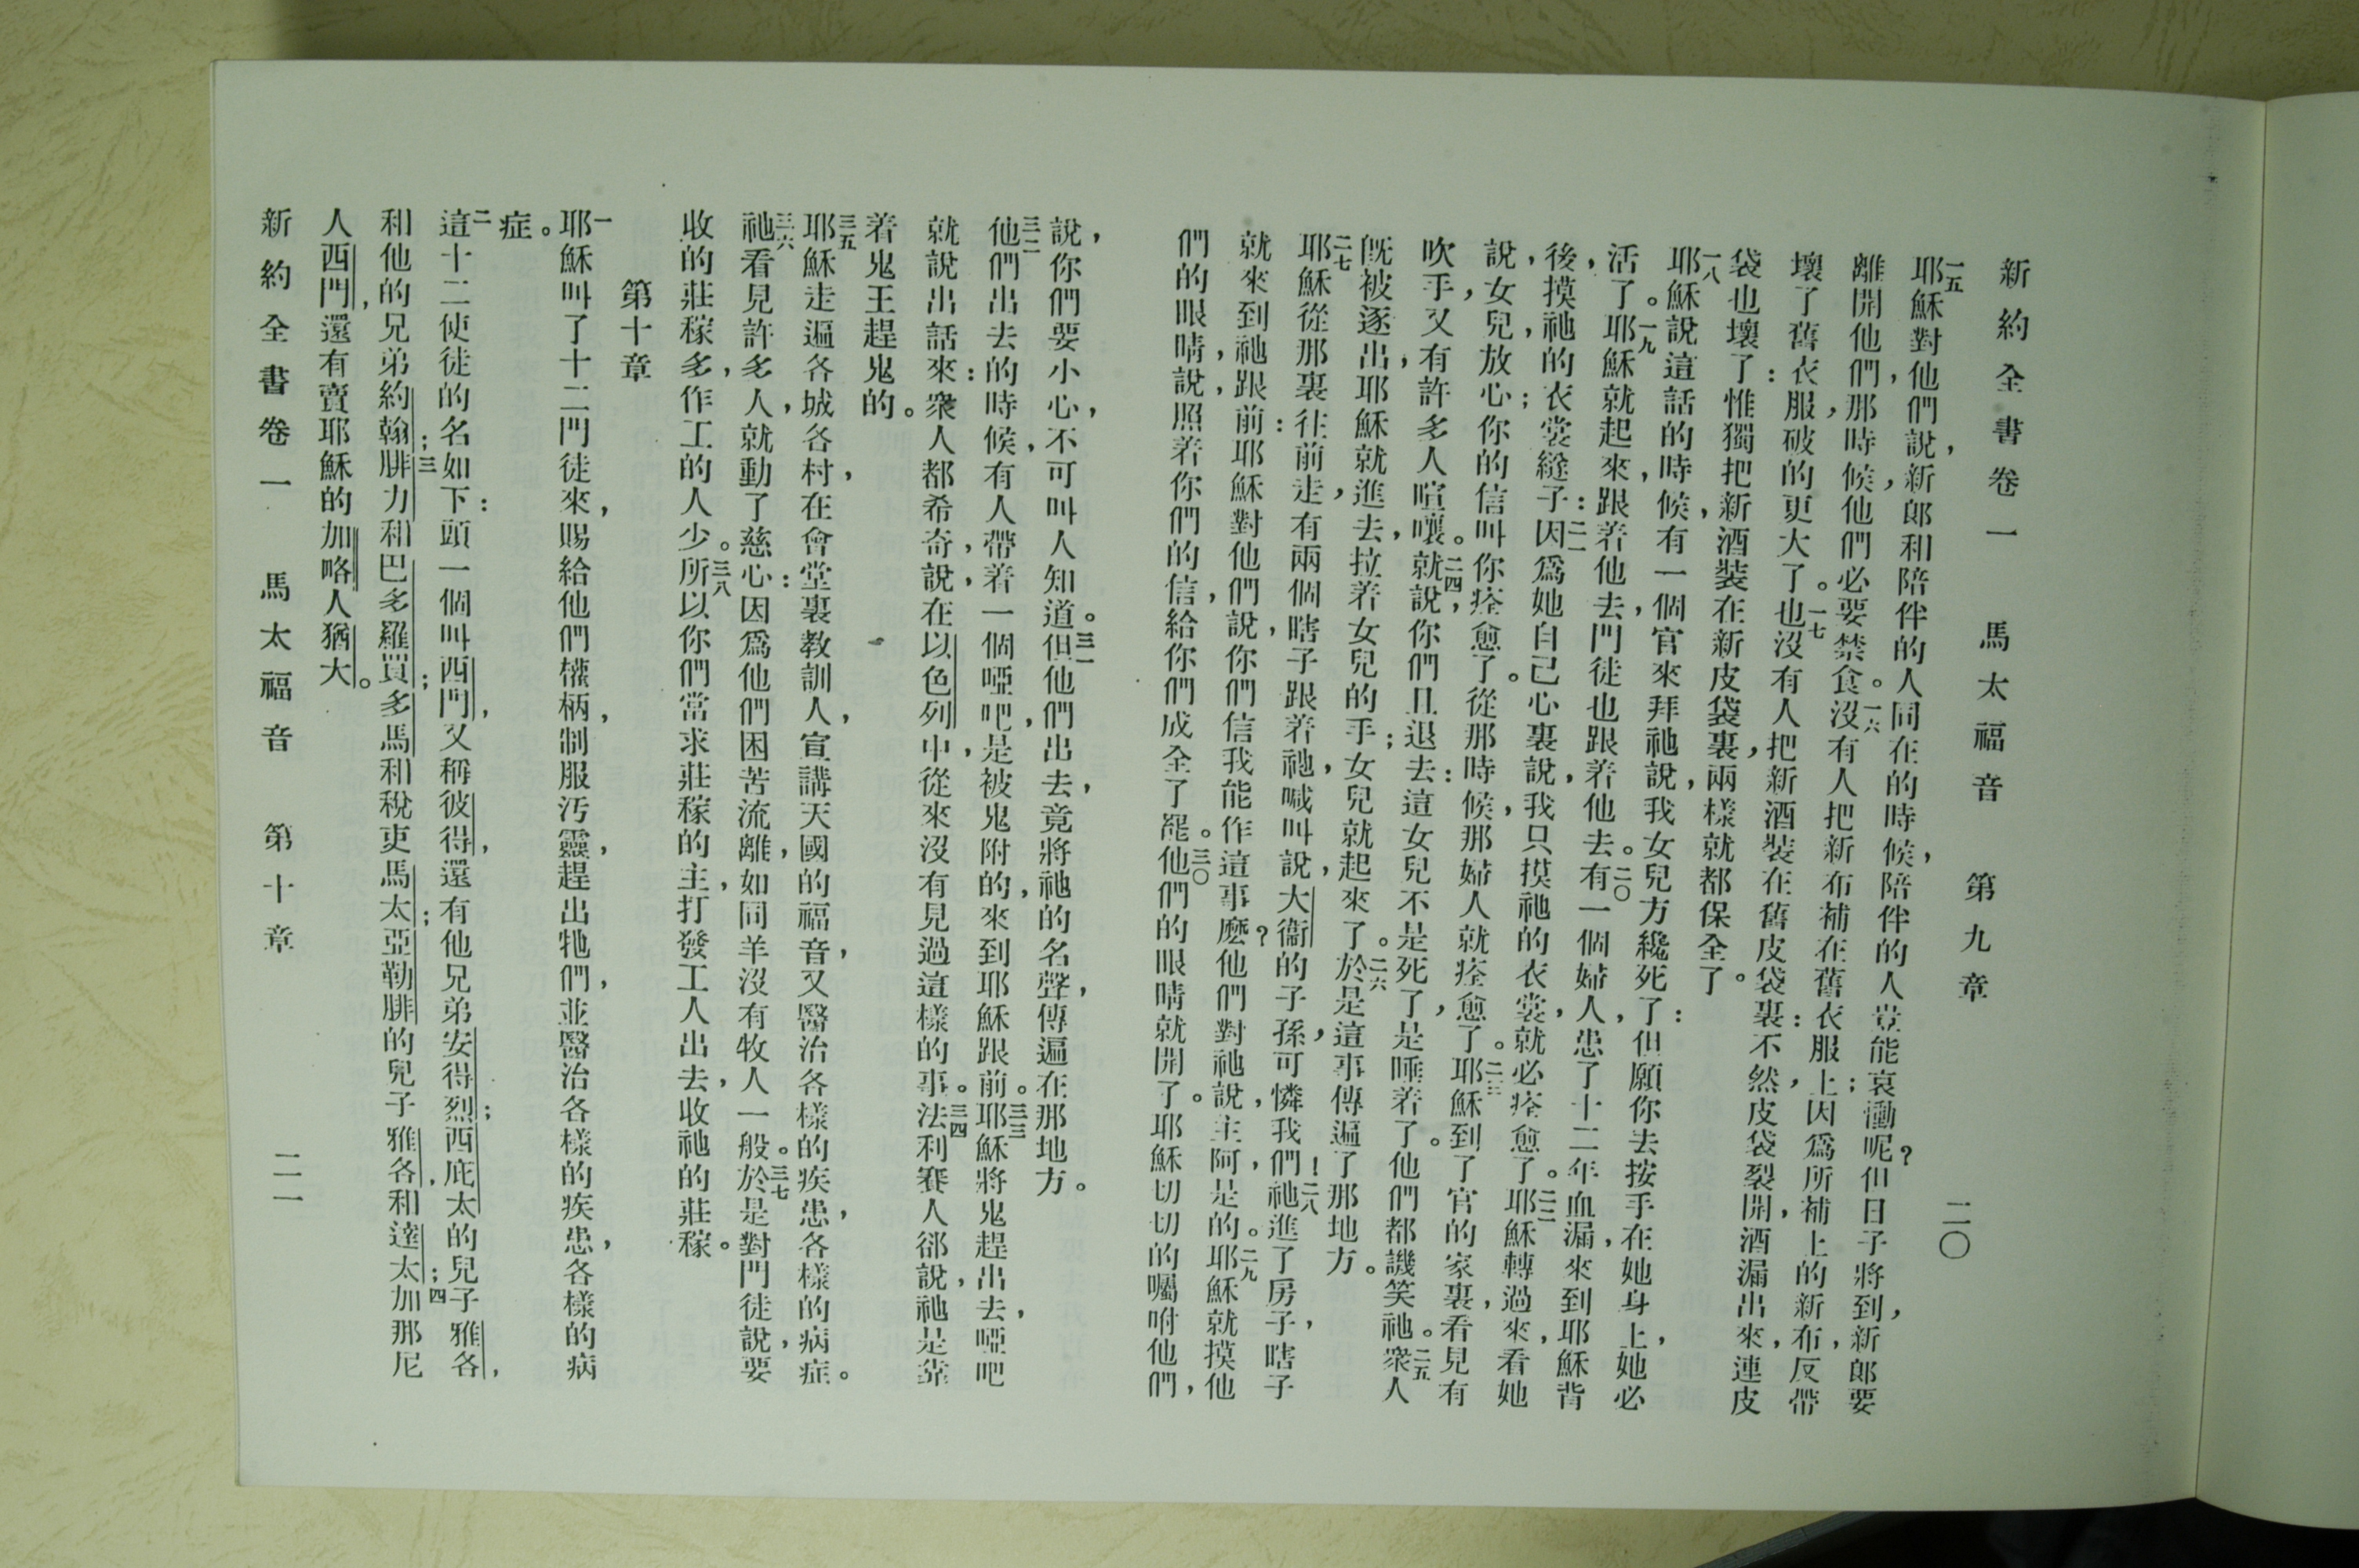 新約全書卷一 馬太福音 第九章 二〇
一五耶穌對他們說，新郎和陪伴的人同在的時候，陪伴的人豈能哀慟呢？但日子將到，新郎要
離開他們，那時候，他們必要禁食。一六沒有人把新布補在舊衣服上；因爲所補上的新布，反帶
壞了舊衣服，破的更大了。一七也沒有人把新酒裝在舊皮袋裏：不然，皮袋裂開，酒漏出來，連皮
袋也壞了：惟獨把新酒裝在新皮袋裏，兩樣就都保全了。
一八耶穌說這話的時候，有一個官來拜祂說，我女兒方纔死了：但願你去按手在她身上，她必
活了。一九耶穌就起來，跟着他去，門徒也跟着他去。二〇有一個婦人，患了十二年血漏，來到耶穌背
後，摸祂的衣裳縫子：二一因爲她自己心裏說，我只摸祂的衣裳，就必痊愈了。二二耶穌轉過來，看她
說，女兒，放心；你的信叫你痊愈了。從那時候，那婦人就痊愈了。二三耶穌到了官的家裏，看見有
吹手，又有許多人喧嚷。二四就說，你們且退去：這女兒不是死了，是睡着了。他們都譏笑祂。二五衆人
旣被逐出，耶穌就進去，拉着女兒的手；女兒就起來了。二六於是這事傳遍了那地方。
二七耶穌從那裏往前走，有兩個瞎子跟着祂，喊叫說，大衞的子孫，可憐我們！二八祂進了房子，瞎子
就來到祂跟前：耶穌對他們說，你們信我能作這事麼？他們對祂說，主阿，是的。二九耶穌就摸他
們的眼睛，說，照着你們的信，給你們成全了罷。三〇他們的眼睛就開了。耶穌切切的囑咐他們，
說，你們要小心，不可叫人知道。三一但他們出去，竟將祂的名聲，傳遍在那地方。
三二他們出去的時候，有人帶着一個啞吧，是被鬼附的，來到耶穌跟前。三三耶穌將鬼趕出去，啞吧
就說出話來：衆人都希奇，說，在以色列中，從來沒有見過這樣的事。三四法利賽人郤說，祂是靠
着鬼王趕鬼的。
三五耶穌走遍各城各村，在會堂裏教訓人，宣講天國的福音，又醫治各樣的疾患，各樣的病症。
三六祂看見許多人，就動了慈心：因爲他們困苦流離，如同羊沒有牧人一般。三七於是對門徒說，要
收的莊稼多，作工的人少。三八所以你們當求莊稼的主，打發工人出去，收祂的莊稼。
第十章
一耶穌叫了十二門徒來，賜給他們權柄，制服汚靈，趕出牠們，並醫治各樣的疾患，各樣的病
症。
二這十二使徒的名如下：頭一個叫西門，又稱彼得，還有他兄弟安得烈；西庇太的兒子雅各，
和他的兄弟約翰；三腓力和巴多羅買；多馬和稅吏馬太；亞勒腓的兒子雅各，和達太；四加那尼
人西門，還有賣耶穌的加略人猶大。
新約全書卷一 馬太福音 第十章 二一